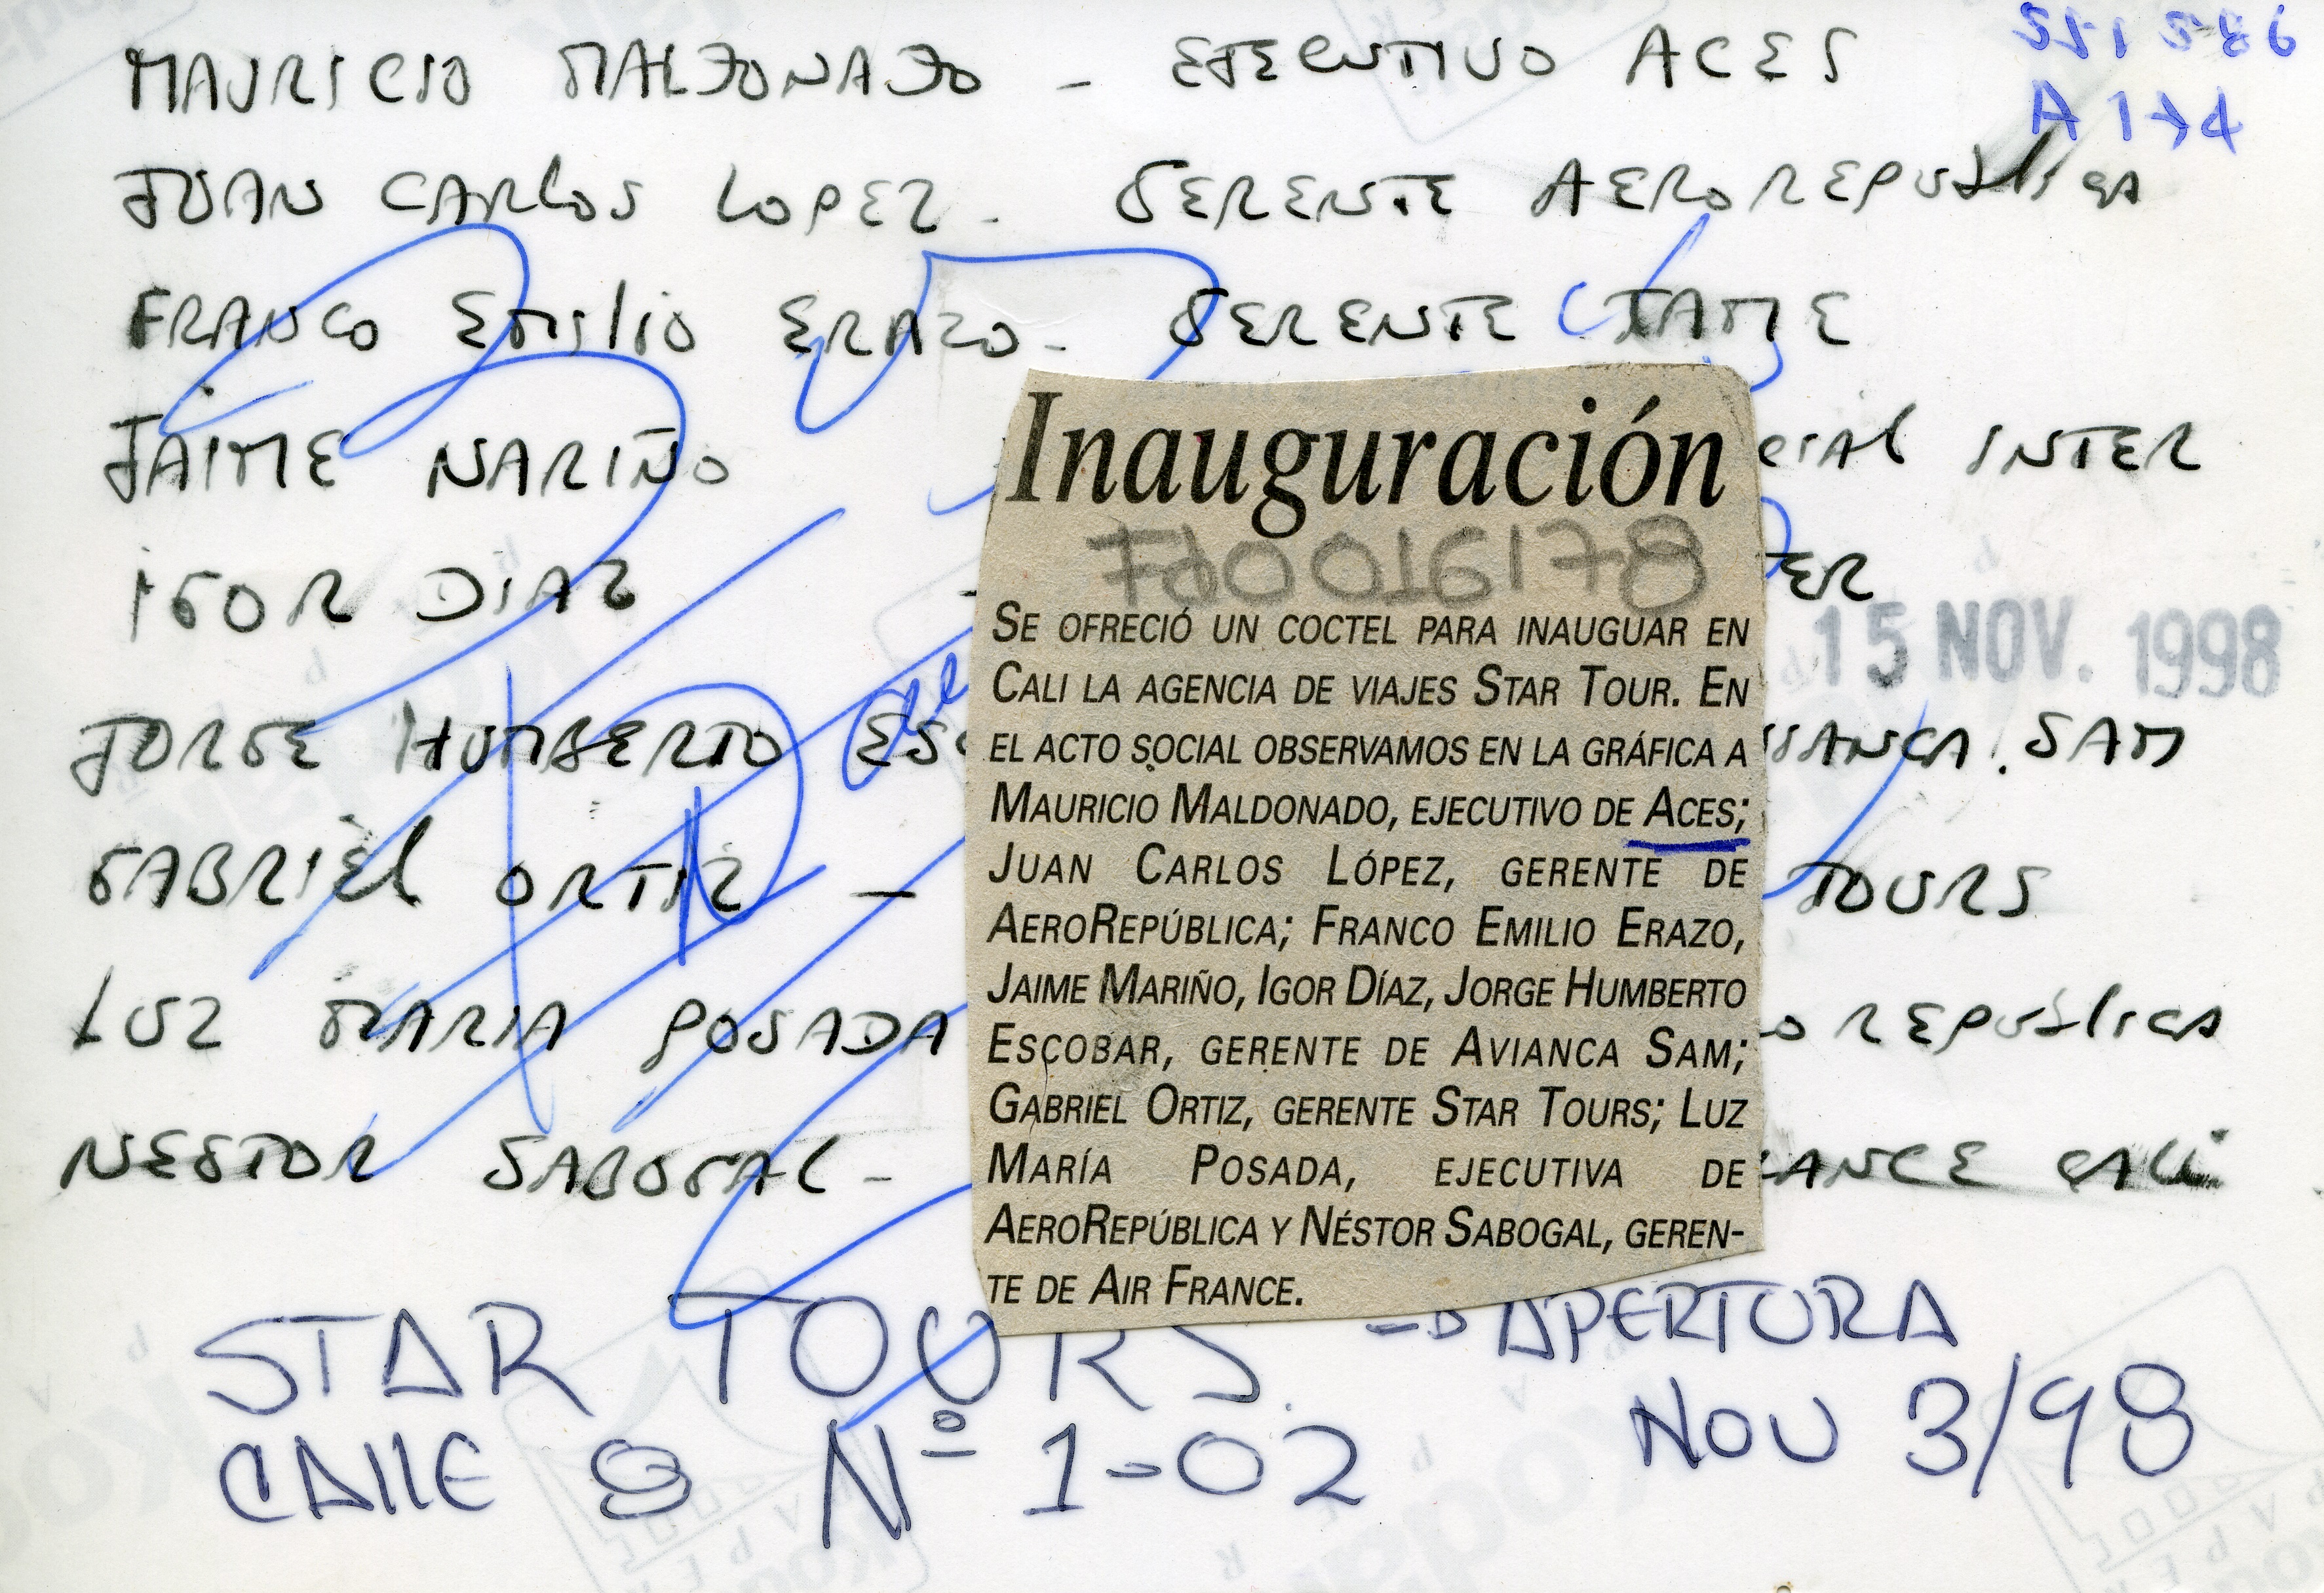 MAURICIO MALDONADO - EJECUTIVO ACES
A174
JUAN CARLOS LOPEZ - GERENTE AEROREPUBLICA
FRANCO EMILIO ERAZO - GERENTE TAME
JAIME NARIÑO CIAL INTER
IGOR DIAZ - TER
15 NOV. 1998
JORGE HUMBERTO ESC IANCA. SAM
GABRIEL ORTIZ - TOURS
LUZ MARIA POSADA O REPUBLICA
NESTOR SABOGAL - ANCE CALI
Inauguración
SE OFRECIÓ UN COCTEL PARA INAUGUAR EN
CALI LA AGENCIA DE VIAJES STAR TOUR. EN
EL ACTO SOCIAL OBSERVAMOS EN LA GRÁFICA A
MAURICIO MALDONADO, EJECUTIVO DE ACES;
JUAN CARLOS LÓPEZ, GERENTE DE
AEROREPÚBLICA; FRANCO EMILIO ERAZO,
JAIME MARIÑO, IGOR DÍAZ, JORGE HUMBERTO
ESCOBAR, GERENTE DE AVIANCA SAM;
GABRIEL ORTIZ, GERENTE STAR TOURS; LUZ
MARÍA POSADA, EJECUTIVA DE
AEROREPÚBLICA Y NÉSTOR SABOGAL, GEREN-
TE DE AIR FRANCE.
STAR TOURS. -> APERTURA
CALLE 8 Nº 1-02 NOV 3/98